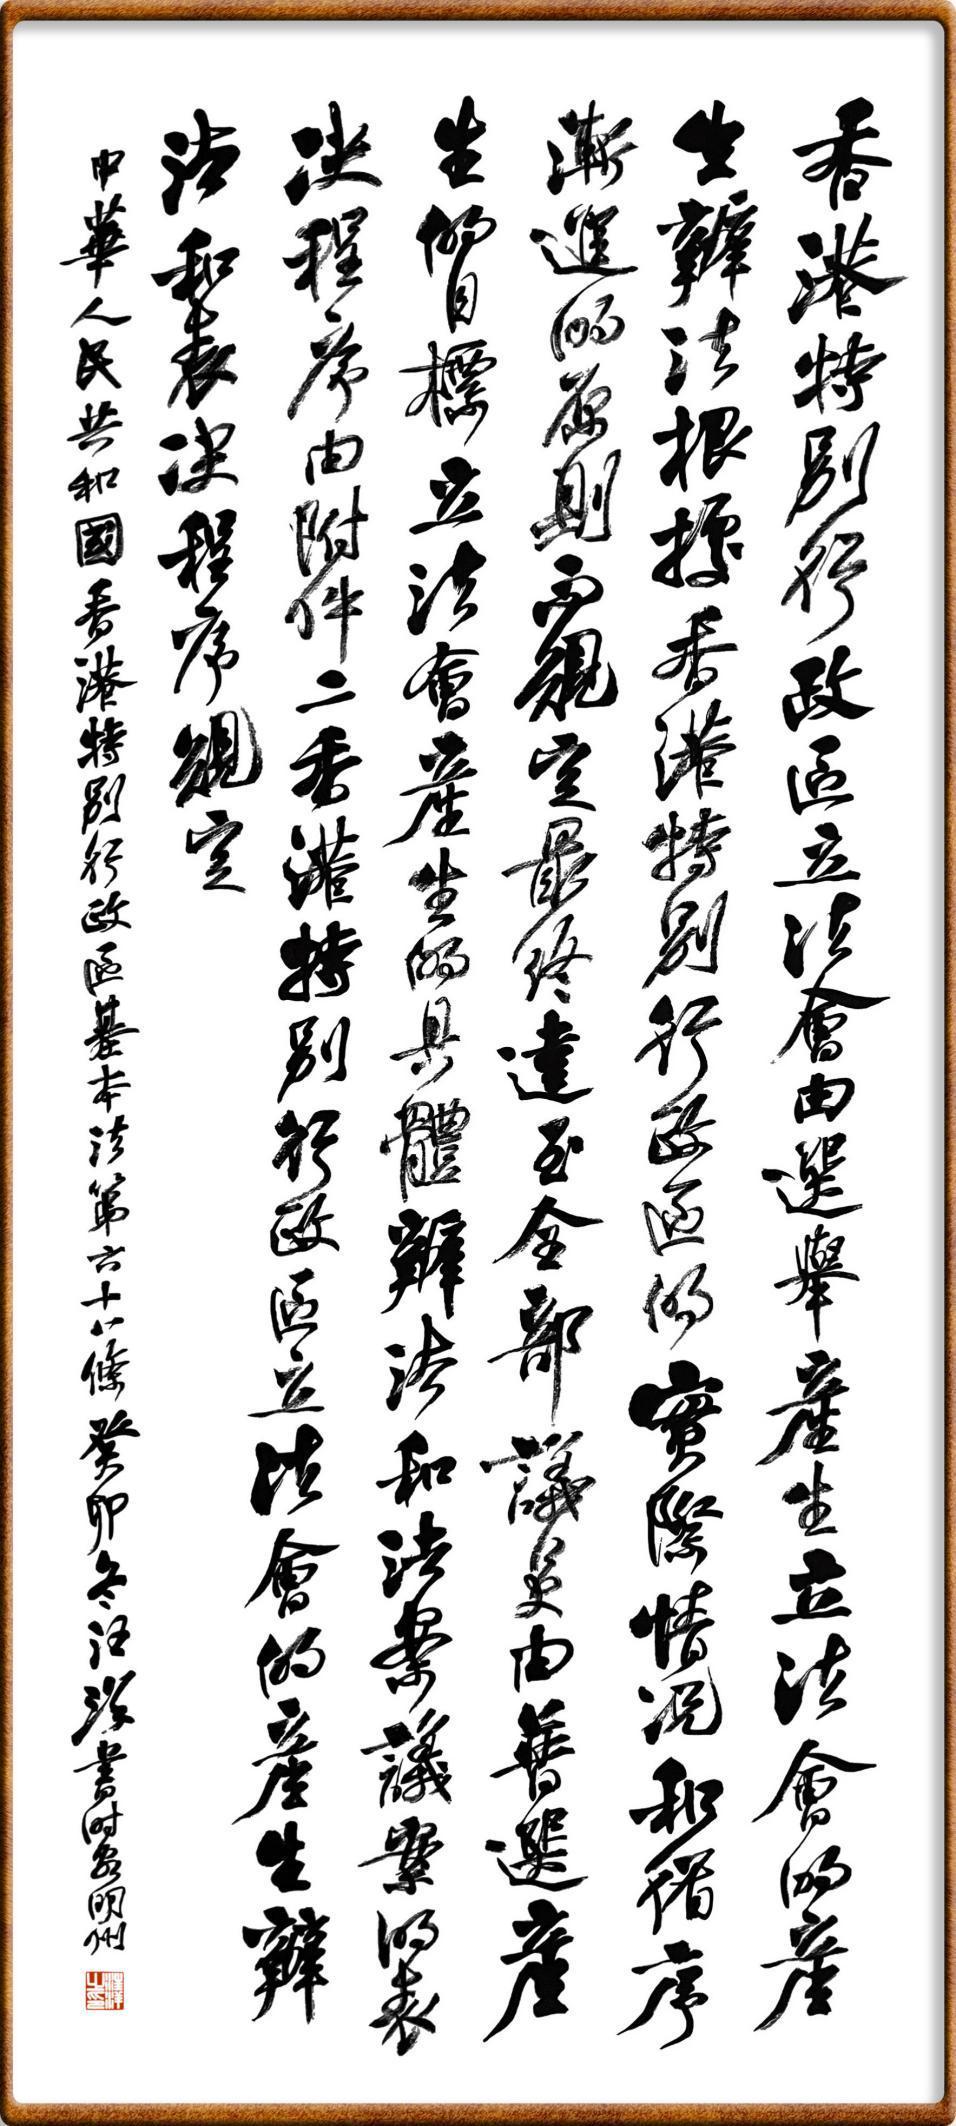 香港特別行政區立法會由選舉產生立法會的產
生辦法根據香港特別行政區的實際情況和循序
漸進的原則而規定最終達至全部議員由普選產
生的目標立法會產生的具體辦法和法案議案的表
決程序由附件二香港特別行政區立法會的產生辦
法和表決程序規定
中華人民共和國香港特別行政區基本法第六十八條癸卯冬汪書时客明州